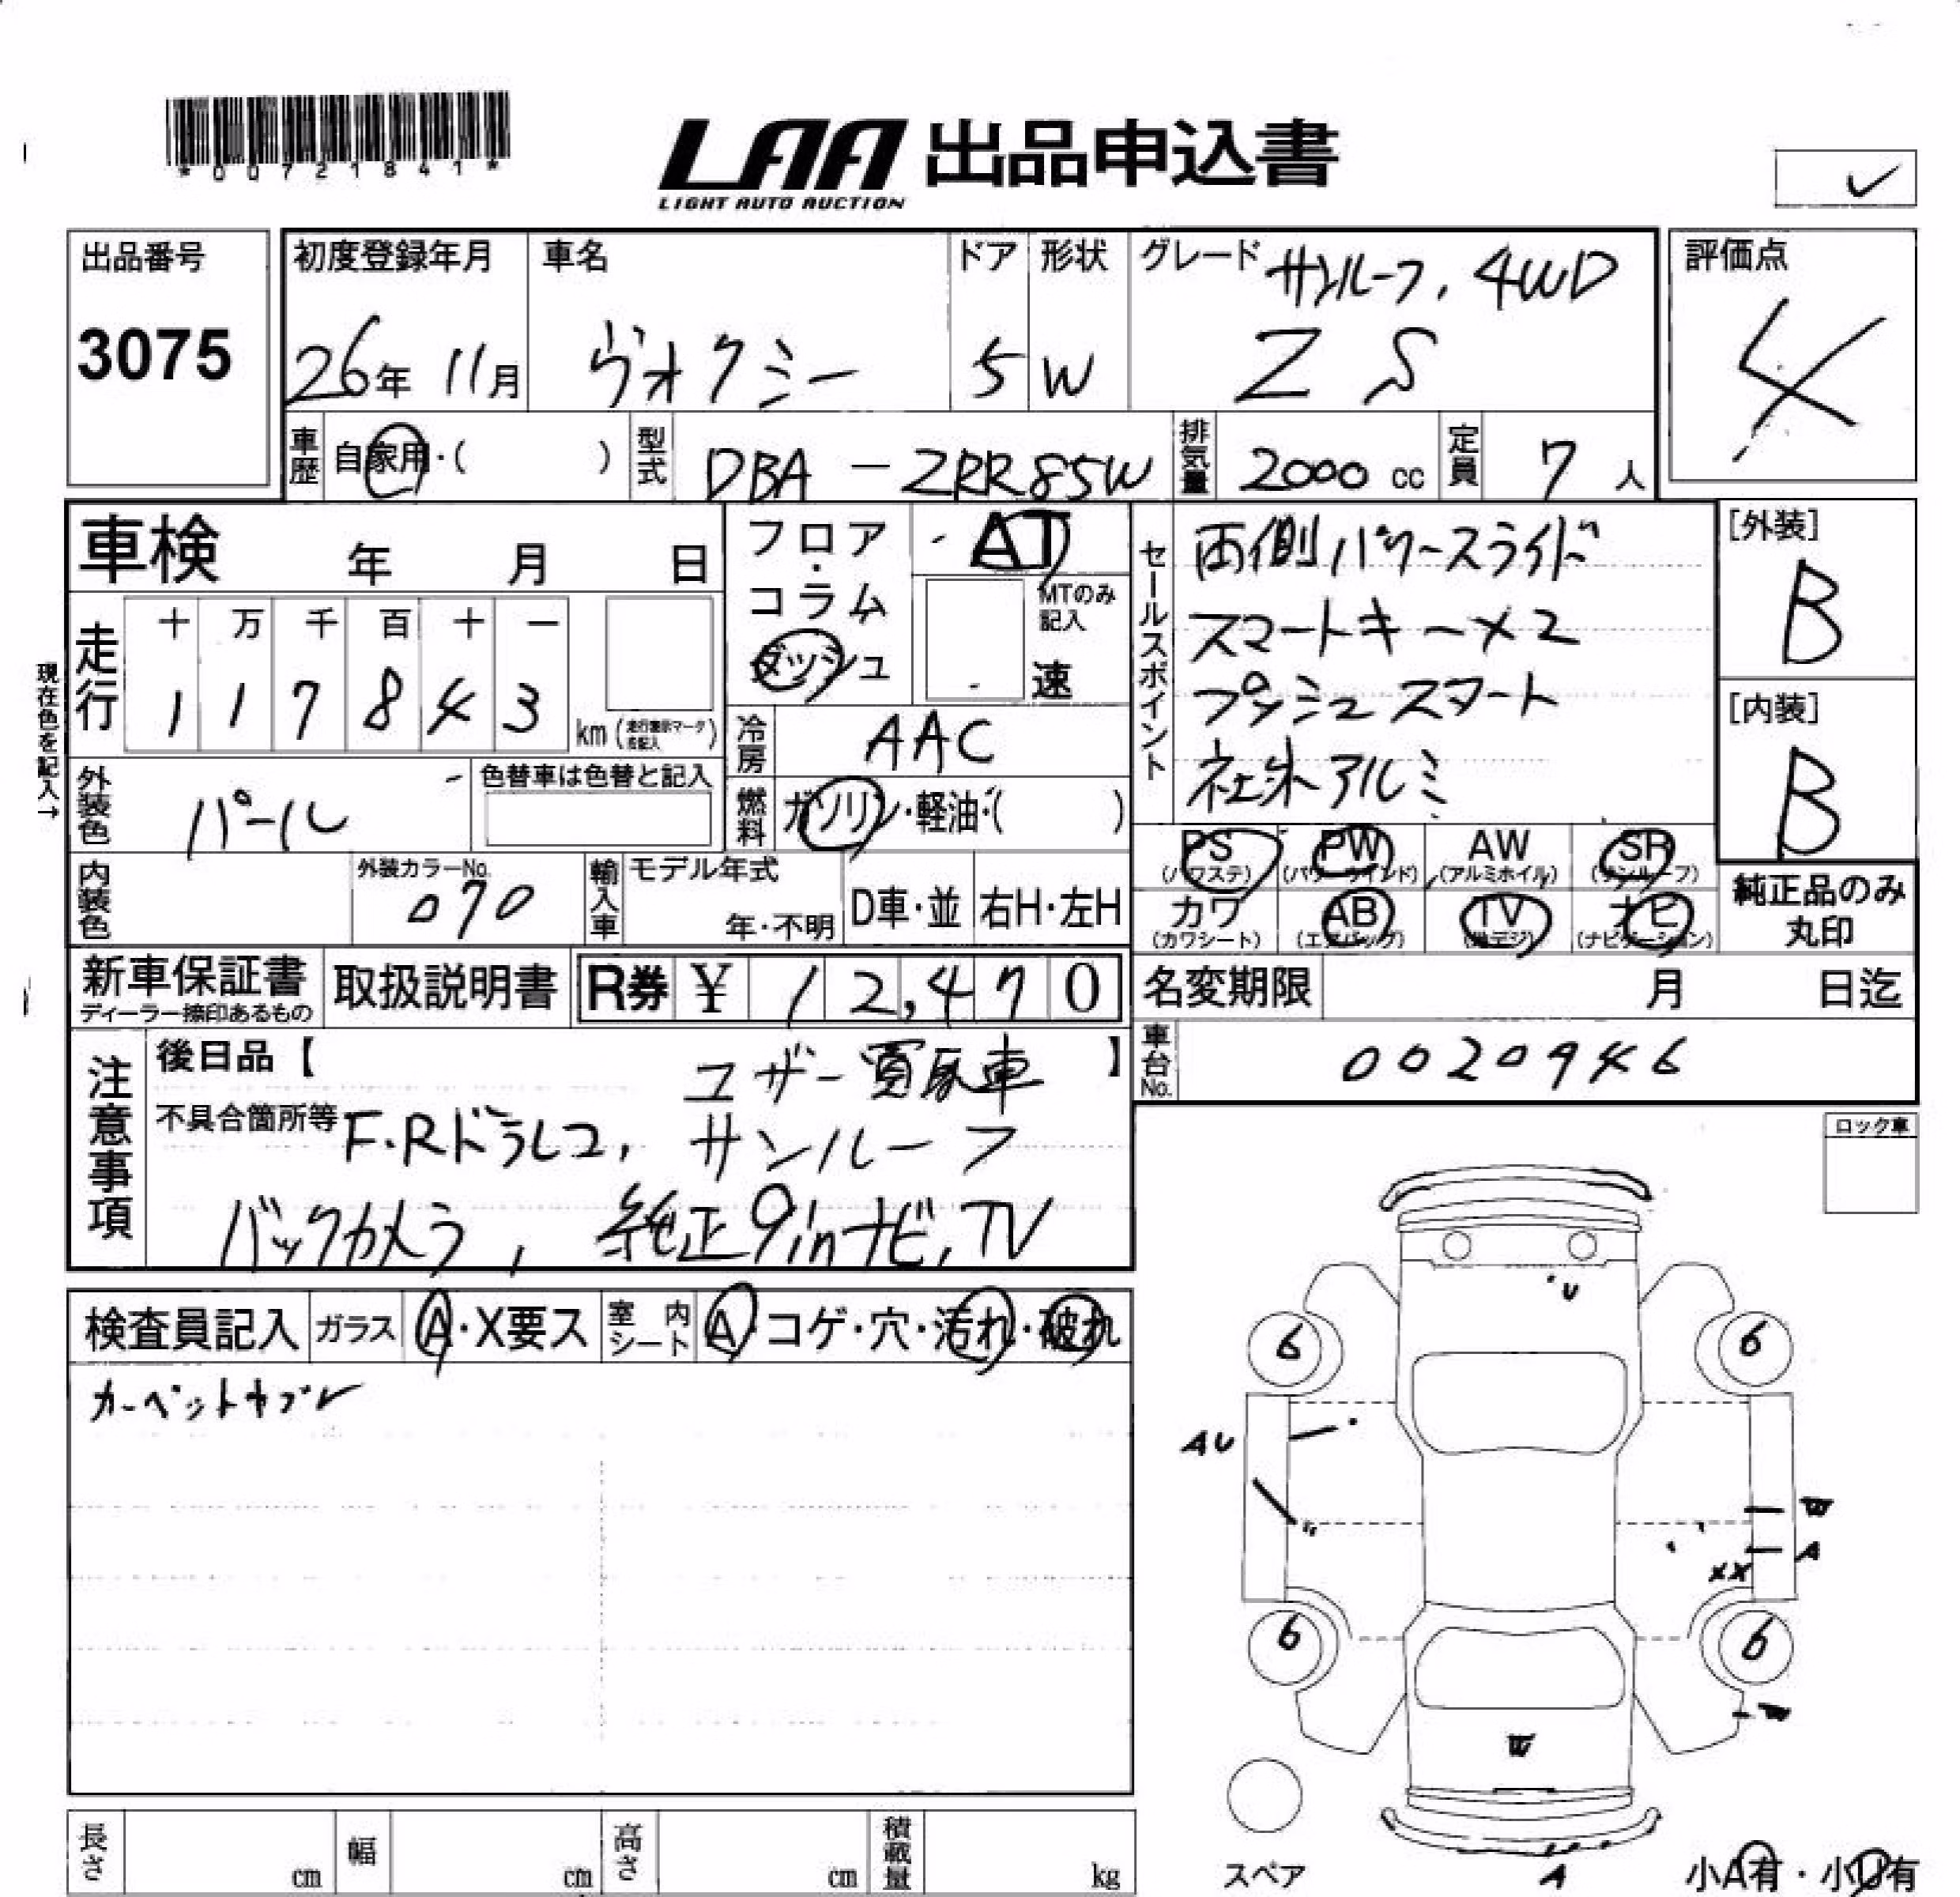 *00721841*
LAA 出品申込書
LIGHT AUTO AUCTION
出品番号
3075
初度登録年月
26年 11月
車名
ヴォクシー
ドア
5
形状
W
グレード サンルーフ, 4WD
ZS
評価点
4
車歴 自家用・( )
型式 DBA-ZRR85W
排気量 2000 cc
定員 7 人
車検 年 月 日
フロア・コラム
ダッシュ
AT
MTのみ記入
速
セールスポイント
両側パワースライド
スマートキー×2
プッシュスタート
社外アルミ
[外装]
B
[内装]
B
現在色を記入→
走行
十 万 千 百 十 一
1 1 7 8 4 3
km
冷房 AAC
外装色 パール
色替車は色替と記入
燃料 ガソリン・軽油・( )
内装色
外装カラーNo.
070
輸入車
モデル年式
年・不明
D車・並
右H・左H
PS
(パワステ)
PW
(パワーウインド)
AW
(アルミホイル)
SR
(サンルーフ)
カワ
(カワシート)
AB
(エアバッグ)
TV
(地デジ)
ナビ
(ナビゲーション)
純正品のみ
丸印
新車保証書
ディーラー捺印あるもの
取扱説明書
R券 ¥ 12,470
名変期限 月 日迄
車台No. 0020946
注意事項
後日品【 】
ユーザー買取車
不具合箇所等 F.Rドラレコ, サンルーフ
バックカメラ, 純正9inナビ, TV
ロック車
検査員記入
ガラス A・X要ス
室内シート A・コゲ・穴・汚れ・破れ
カーペットヤブレ
U
6
6
AU
W
A
XX
6
6
W
W
A
スペア
小A有・小U有
長さ cm
幅 cm
高さ cm
積載量 kg